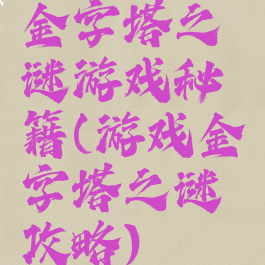 金字塔之
谜游戏秘
籍(游戏金
字塔之谜
攻略)